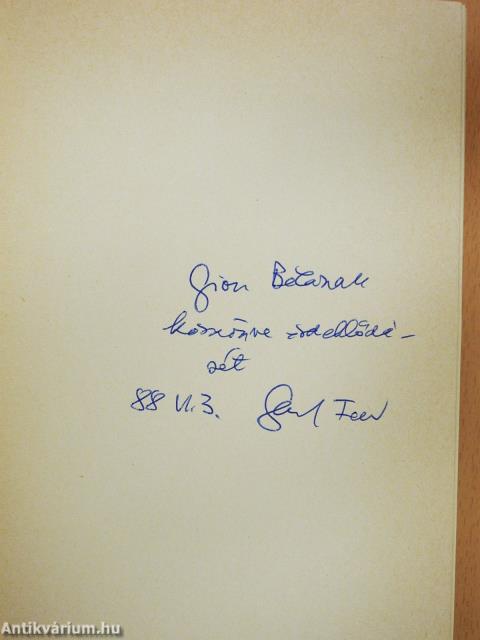 Gion Bélának
köszönve érdeklődé-
sét
88 VI.3.
Antikvárium.hu